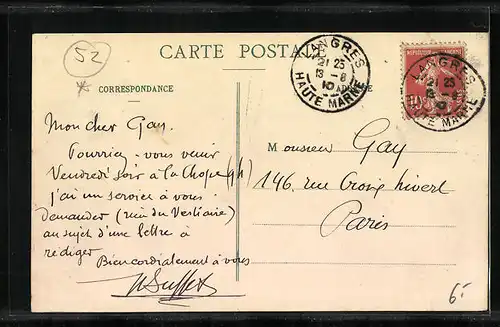 52
CARTE POSTALE
LANGRES
21 25
13 - 8
10
HAUTE MARNE
LANGRES
21 25
13 - 8
10
HAUTE MARNE
10
CORRESPONDANCE
Mon cher Gay.
Pourriez-vous venir
Vendredi soir à la Chope (9h)
j'ai un service à vous
demander (rien du Vestiaire)
au sujet d'une lettre à
rédiger
Bien cordialement à vous
Monsieur Gay
146, rue Croix Nivert
Paris
6-